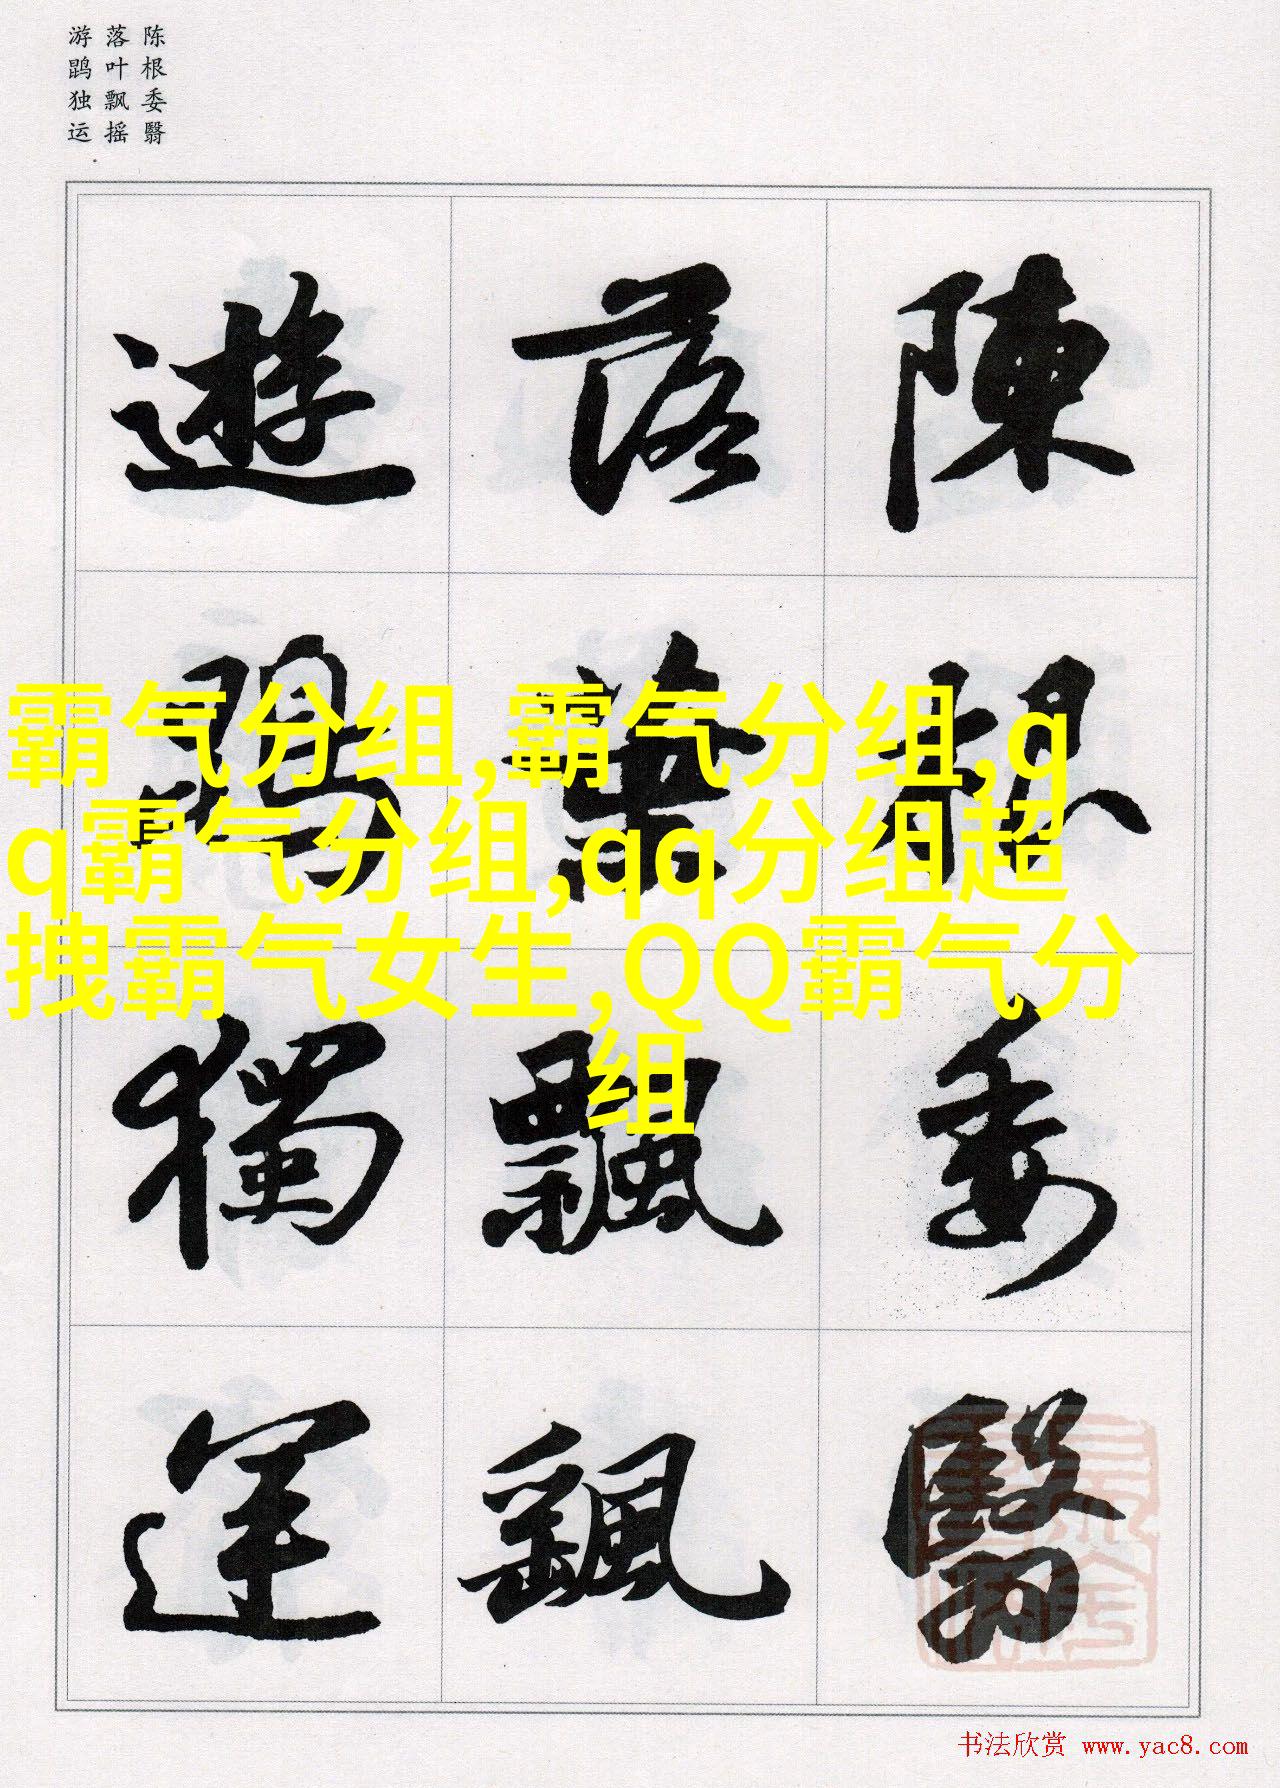 陈根委翳
落叶飘摇
游鹍独运
陳根委翳
落葉飄颻
遊鵾獨運
霸气分组,霸气分组,q
q霸气分组,qq分组超
拽霸气女生,QQ霸气分
组
书法欣赏 www.yac8.com